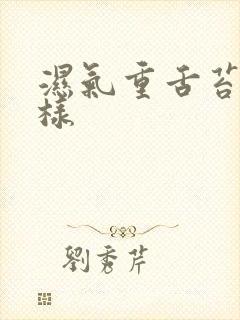 濕氣重舌苔
樣
劉秀芹